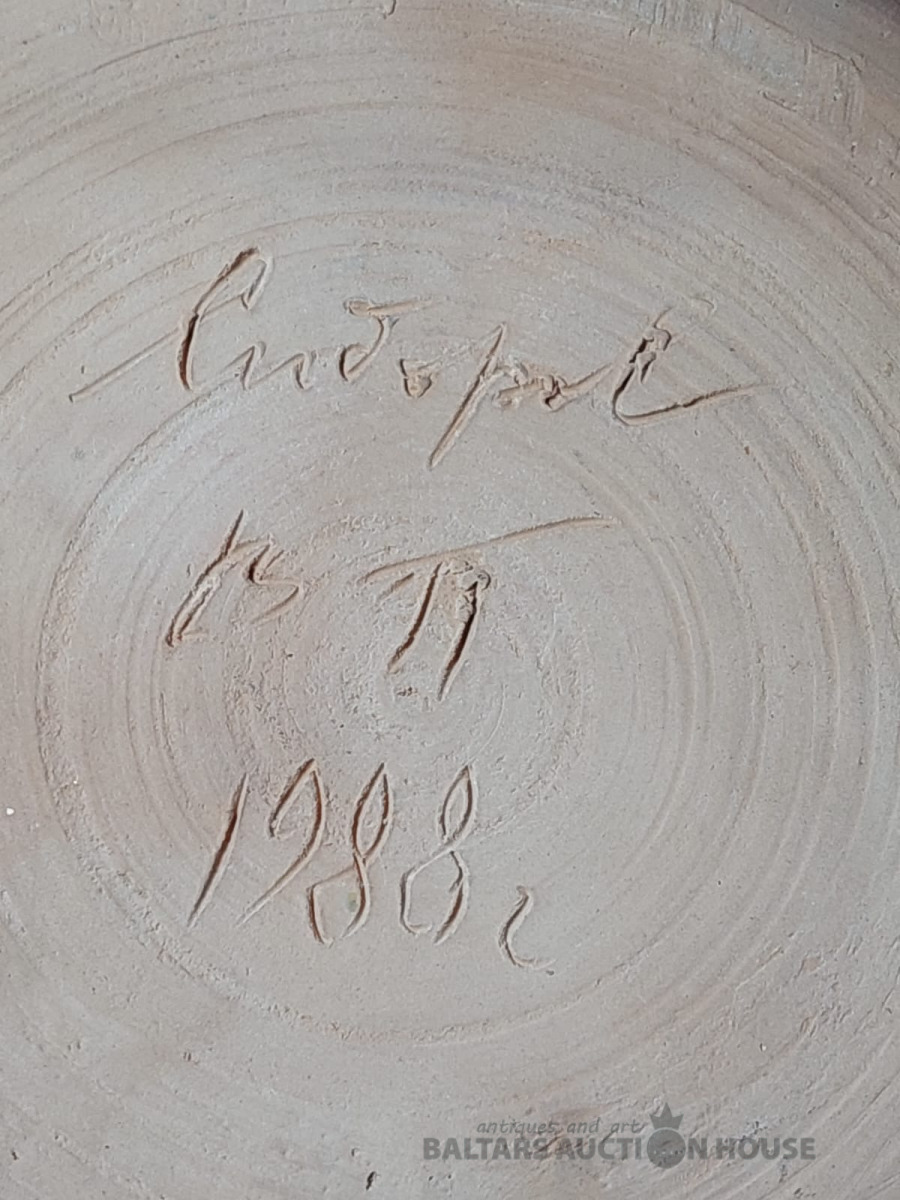 Сидоров
В П
1988 г
antiques and art
BALTARS AUCTION HOUSE